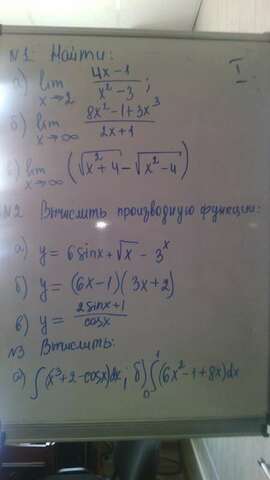 N1 Найти: I
а) lim x→2 (4x-1)/(x²-3);
б) lim x→∞ (8x²-1+3x³)/(2x+1)
в) lim x→∞ (√(x²+4)-√(x²-4))
N2 Вычислить производную функции:
а) y=6sinx+√x-3ˣ
б) y=(6x-1)(3x+2)
в) y=(2sinx+1)/cosx
N3 Вычислить:
а) ∫(x³+2-cosx)dx; б) ∫₀¹(6x²-1+8x)dx